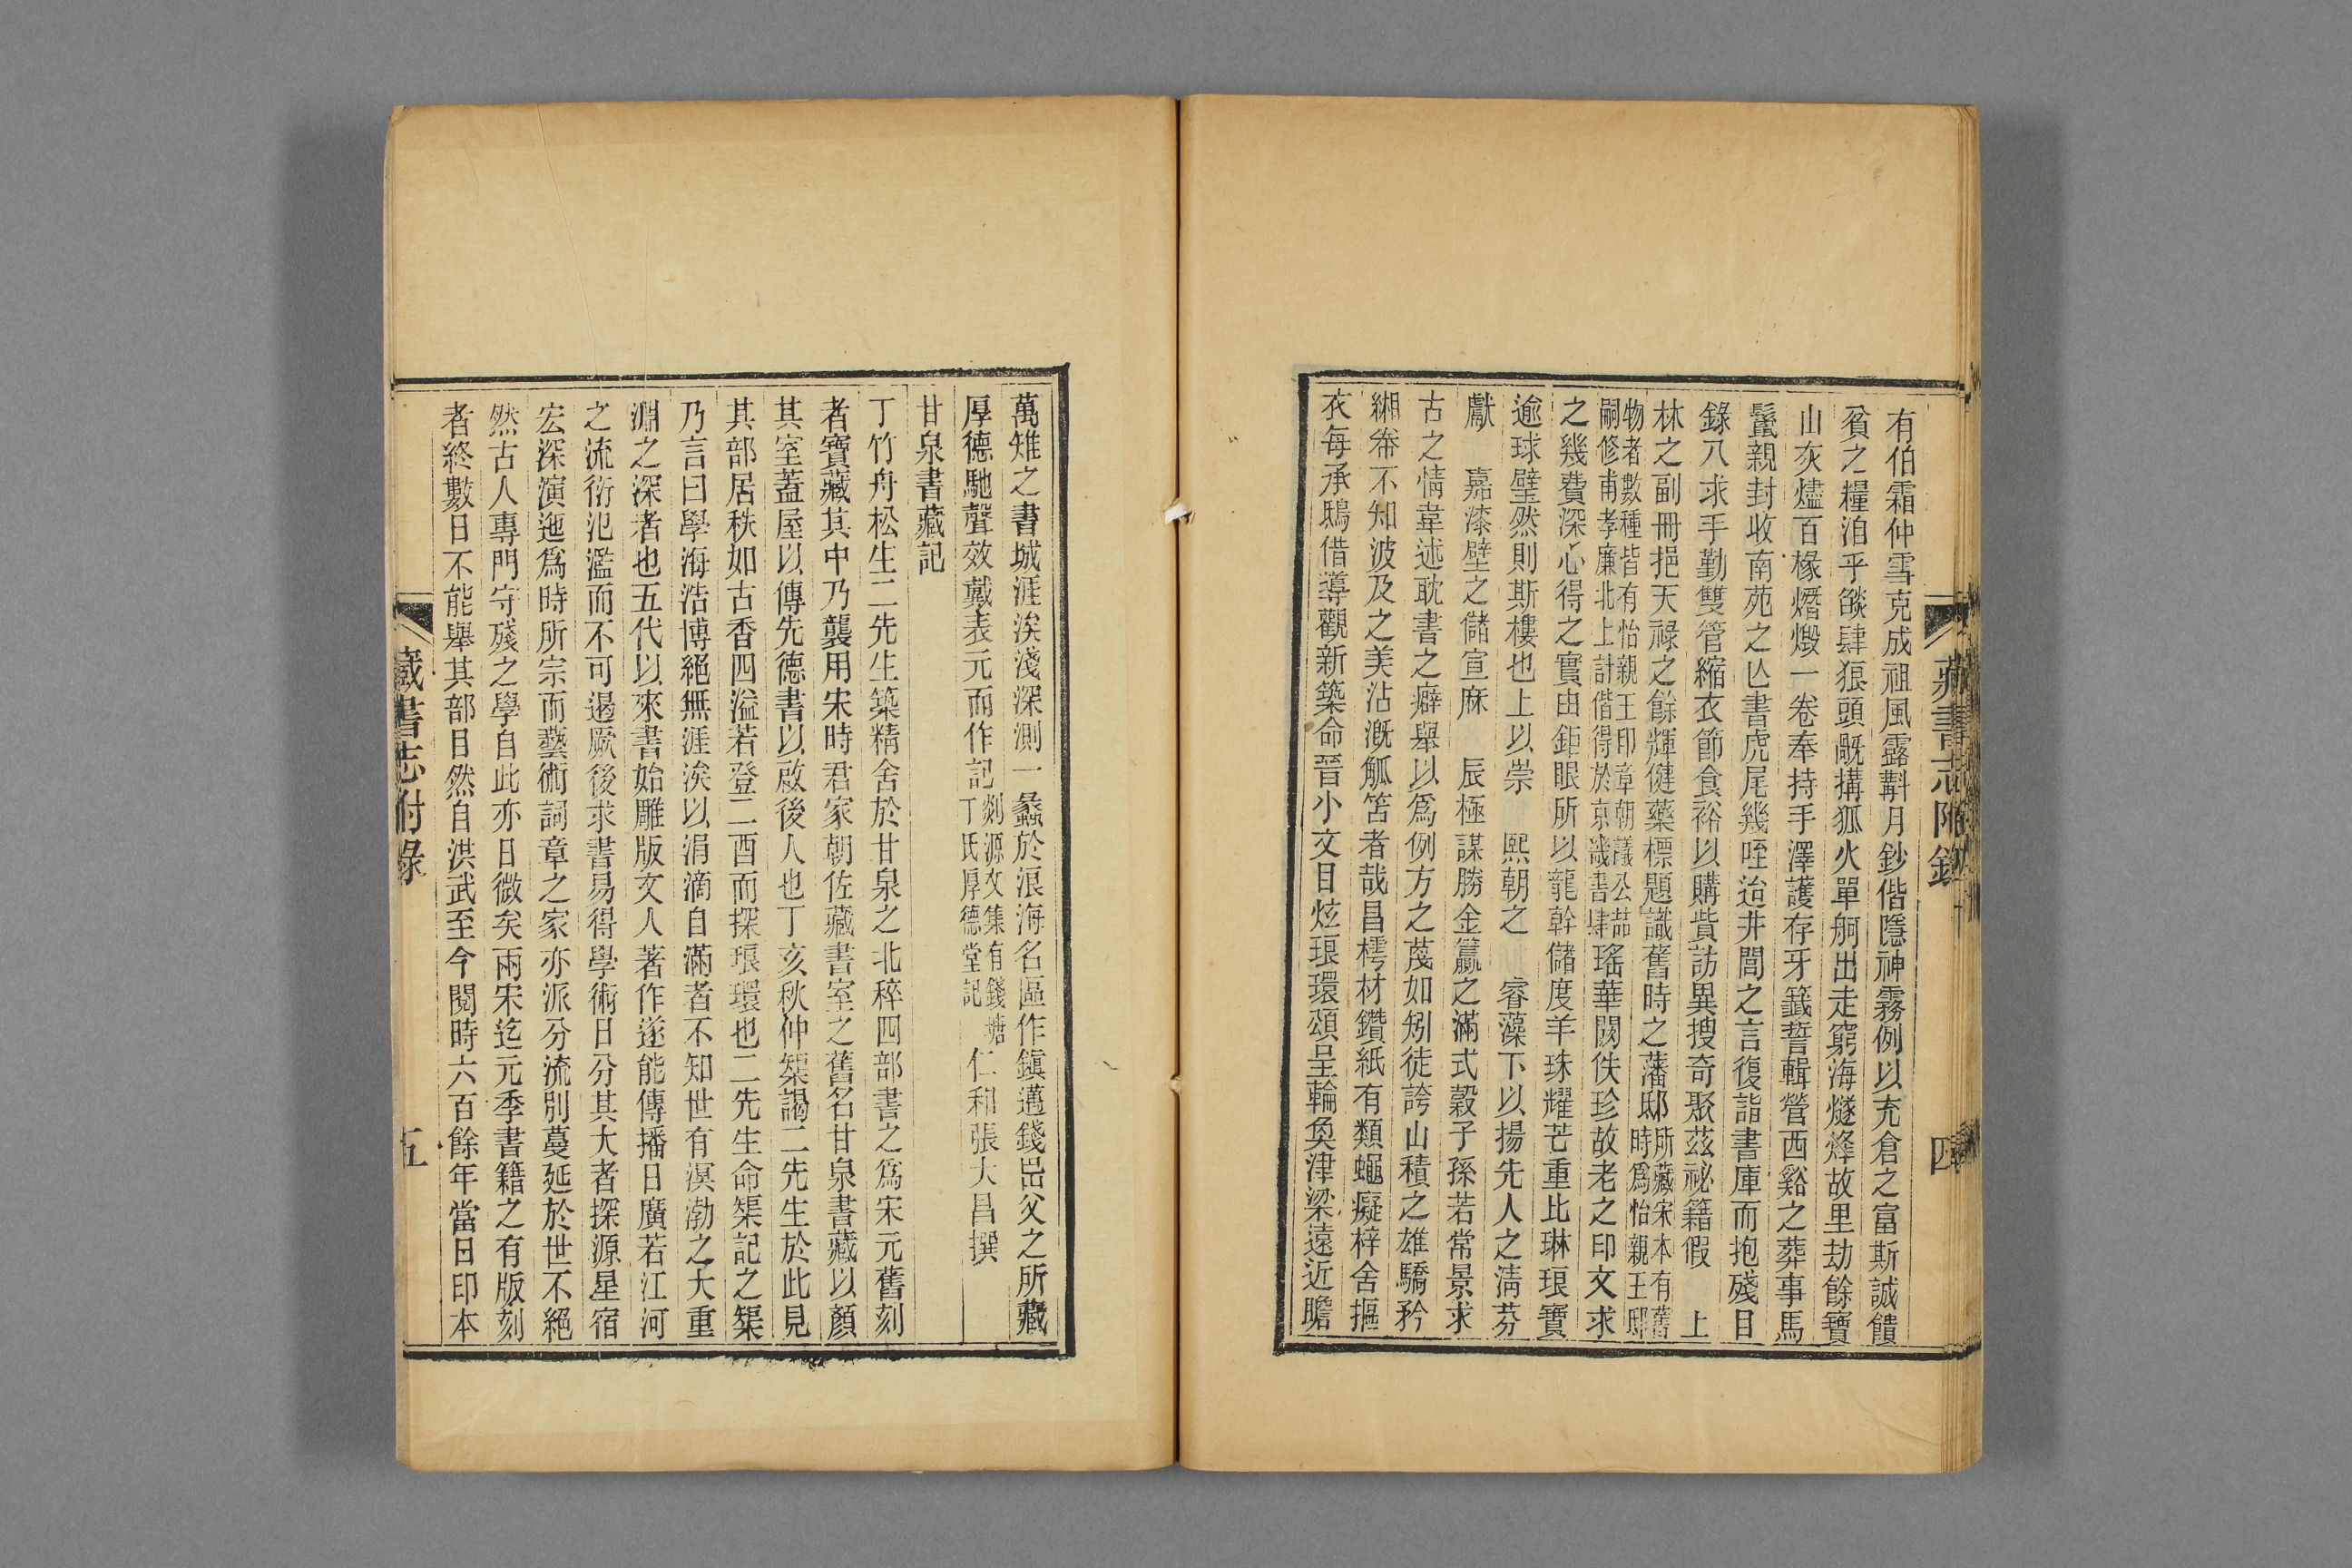 有伯霜仲雪克成祖風露斠月鈔偕隱神霧例以充倉之富斯誠饋
貧之糧洎乎燄肆狼頭厩搆狐火單舸出走窮海燧烽故里劫餘寶
山灰燼百椽熸燬一卷奉持手澤護存牙籤誓輯營西谿之葬事馬
鬣親封收南苑之亾書虎尾幾咥迨井閭之言復詣書庫而抱殘目
錄八求手勤雙管縮衣節食裕以購貲訪異搜奇聚茲祕籍假 上
林之副冊挹天祿之餘輝健藥標題識舊時之藩邸所藏宋本有舊時爲怡親王邸
物者數種皆有怡親王印章朝議公喆嗣修甫孝廉北上計偕得於京畿書肆瑤華闕佚珍故老之印文求
之幾費深心得之實由鉅眼所以龍幹儲度羊珠耀芒重比琳琅寶
逾球璧然則斯樓也上以崇 熙朝之 睿藻下以揚先人之淸芬
獻 嘉漆壁之儲宣麻 辰極謀勝金籯之滿式穀子孫若常景求
古之情韋述耽書之癖舉以爲例方之蔑如矧徒誇山積之雄驕矜
緗帙不知波及之美沾漑觚笘者哉昌樗材鑽紙有類蠅癡梓舍摳
衣每承鴟借導觀新築命晉小文目炫琅環頌呈輪奐津梁遠近瞻
藏書志附錄 四
萬雉之書城涯涘淺深測一蠡於浪海名區作鎭邁錢嵒父之所藏
厚德馳聲效戴表元而作記剡源文集有錢塘丁氏厚德堂記 仁和張大昌撰
甘泉書藏記
丁竹舟松生二先生築精舍於甘泉之北稡四部書之爲宋元舊刻
者寶藏其中乃襲用宋時君家朝佐藏書室之舊名甘泉書藏以顏
其室蓋屋以傳先德書以啟後人也丁亥秋仲榘謁二先生於此見
其部居秩如古香四溢若登二酉而探琅環也二先生命榘記之榘
乃言曰學海浩博絕無涯涘以涓滴自滿者不知世有溟渤之大重
淵之深者也五代以來書始雕版文人著作遂能傳播日廣若江河
之流衍氾濫而不可遏厥後求書易得學術日分其大者探源星宿
宏深演迤爲時所宗而藝術詞章之家亦派分流別蔓延於世不絕
然古人專門守殘之學自此亦日微矣兩宋迄元季書籍之有版刻
者終數日不能舉其部目然自洪武至今閱時六百餘年當日印本
藏書志附錄 五